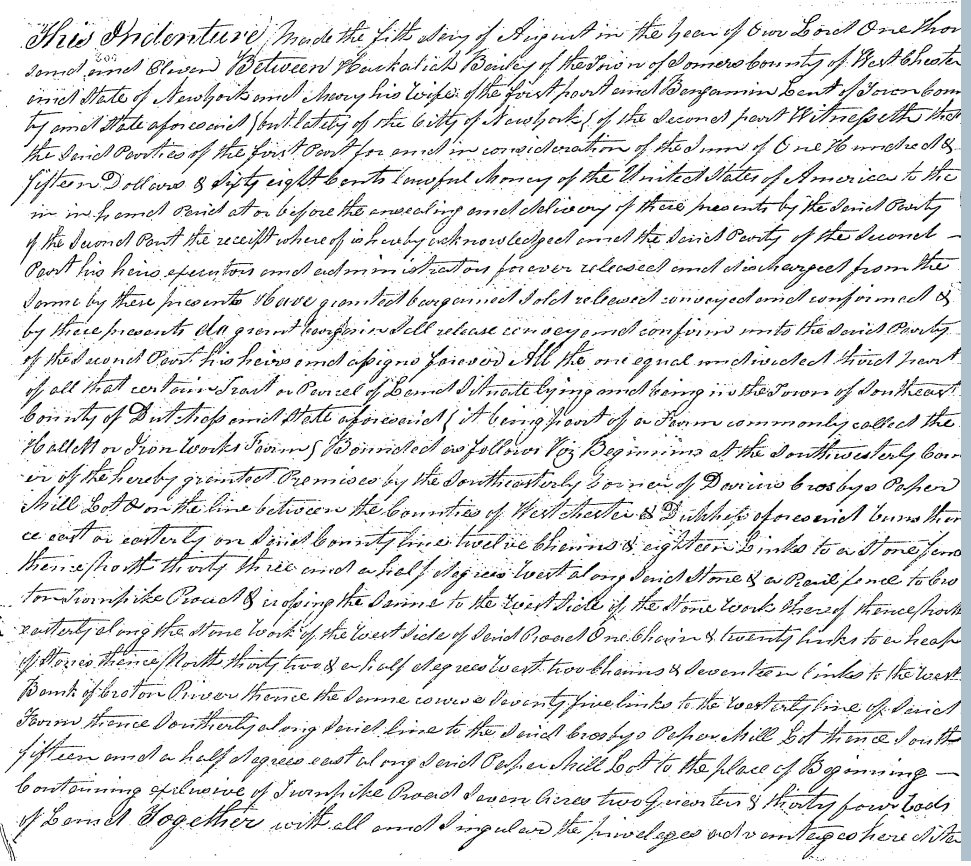 This Indenture Made the fifth day of August in the year of Our Lord One thou
800
sand and Eleven Between Hackaliah Bailey of the Town of Somers County of West Chester
and State of New York and Mary his Wife of the first part and Benjamin Lent of Town Coun
ty and State aforesaid (but lately of the City of New York) of the Second part Witnesseth that
the Said Parties of the first Part for and in consideration of the Sum of One Hundred &
fifteen Dollars & Sixty eight Cents lawful Money of the United States of America to the
m in hand Paid at or before the ensealing and delivery of these presents by the Said Party
of the Second Part the receipt where of is hereby acknowledged and the Said Party of the Second —
Part his heirs executors and administrators forever released and discharged from the
Same by these presents Have granted bargained Sold released conveyed and confirmed &
by these presents do grant bargain Sell release convey and confirm unto the Said Party
of the Second Part his heirs and assigns forever All the one equal undivided third part
of all that certain Tract or Parcel of Land Situate lying and being in the Town of Southeast
County of Dutchess and State aforesaid (it being part of a Farm commonly called the
Hallett or Iron Works Farm) Bounded as follows Viz Beginning at the Southwesterly Corn
er of the hereby granted Premises by the Southeasterly Corner of Darius Crosbys Paper
Mill Lot & on the line between the Counties of West Chester & Dutchess aforesaid runs then
ce east or easterly on Said County line twelve Chains & eighteen Links to a Stone fence
thence North thirty three and a half degrees West along Said Stone & a Rail fence to Cro
ton Turnpike Road & crossing the Same to the West Side of the Stone Work thereof thence North
easterly along the Stone Work of the West Side of Said Road One Chain & twenty links to a heap
of Stones thence North thirty two & a half degrees West two Chains & Seventeen links to the West
Bank of Croton River thence the Same course Seventy five links to the Westerly line of Said
Farm thence Southerly along Said line to the Said Crosbys Paper Mill Lot thence South
fifteen and a half degrees east along Said Paper Mill Lot to the place of Beginning —
Containing exclusive of Turnpike Road Seven Acres two Quarters & thirty four Rods
of Land Together with all and Singular the privileges advantages heredita